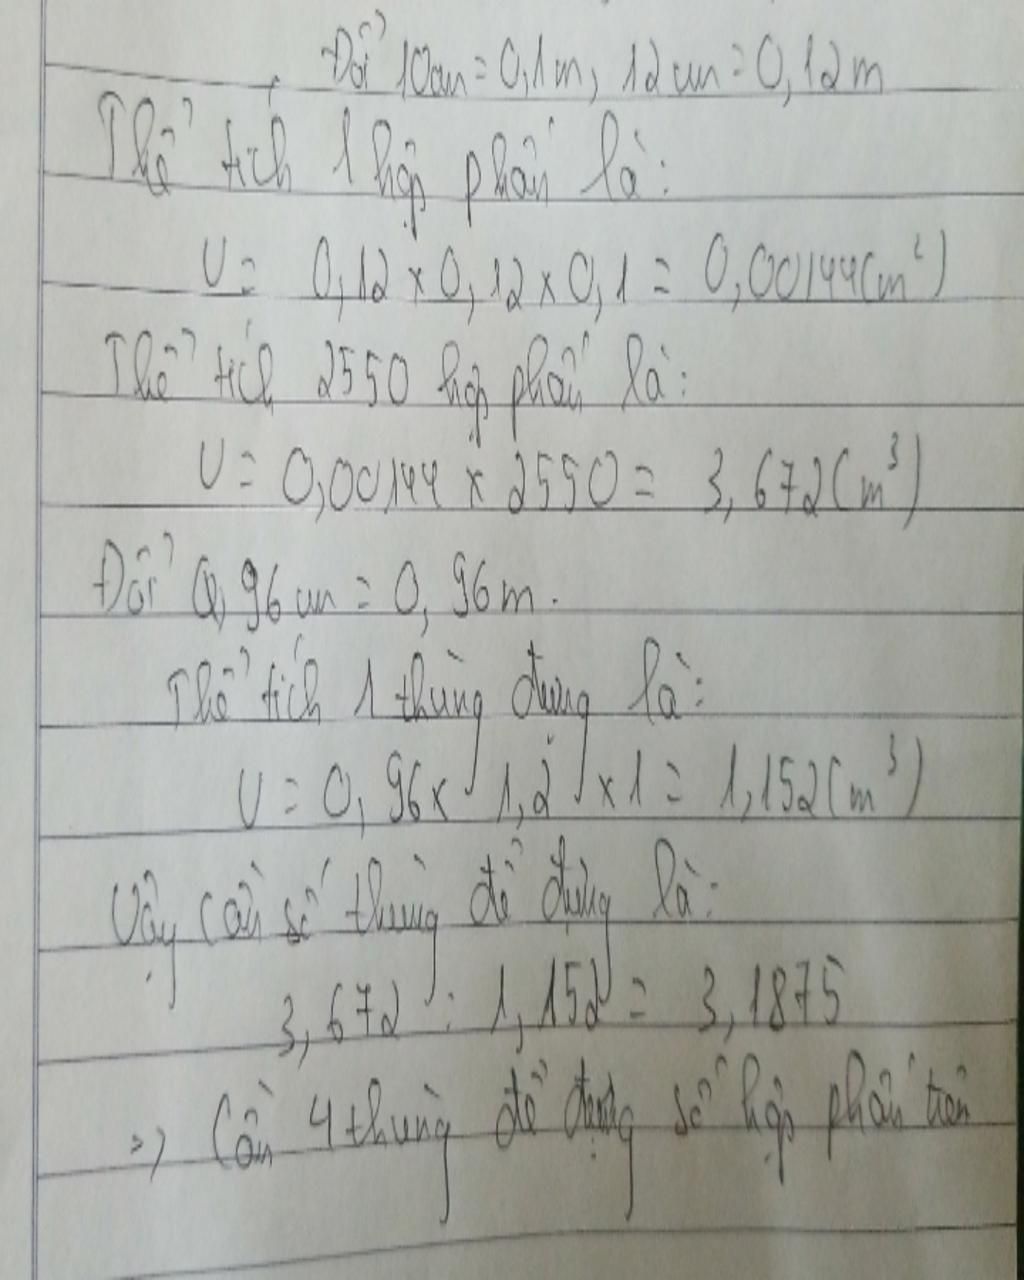 Đổi 10cm = 0,1m, 12cm = 0,12m
Thể tích 1 hộp phấn là:
V = 0,12 x 0,12 x 0,1 = 0,00144(m²)
Thể tích 2550 hộp phấn là:
V = 0,00144 x 2550 = 3,672(m³)
Đổi 0,96cm = 0,96m.
Thể tích 1 thùng đựng là:
V = 0,96 x 1,2 x 1 = 1,152(m³)
Vậy cần số thùng để đựng là:
3,672 : 1,152 = 3,1875
=> Cần 4 thùng để đựng số hộp phấn trên